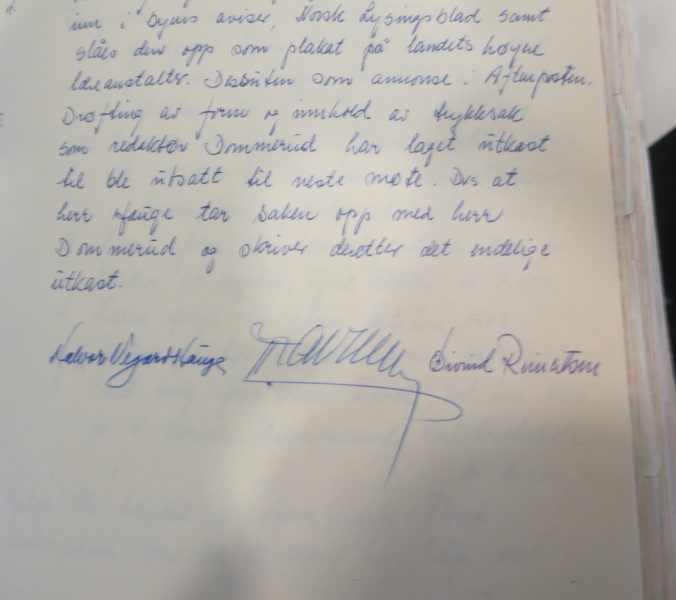 inn i byens aviser, Norsk Lysingsblad samt
slåes den opp som plakat på landets høyne
læreanstalter. Dessuten som annonse i Aftenposten.
Drøfting av form og innhold av trykksak
som redaktør Dommerud har laget utkast
til ble utsatt til neste møte. Dvs. at
herr Hauge tar saken opp med herr
Dommerud og skriver deretter det endelige
utkast.
Halvor Vegard Hauge Øivind